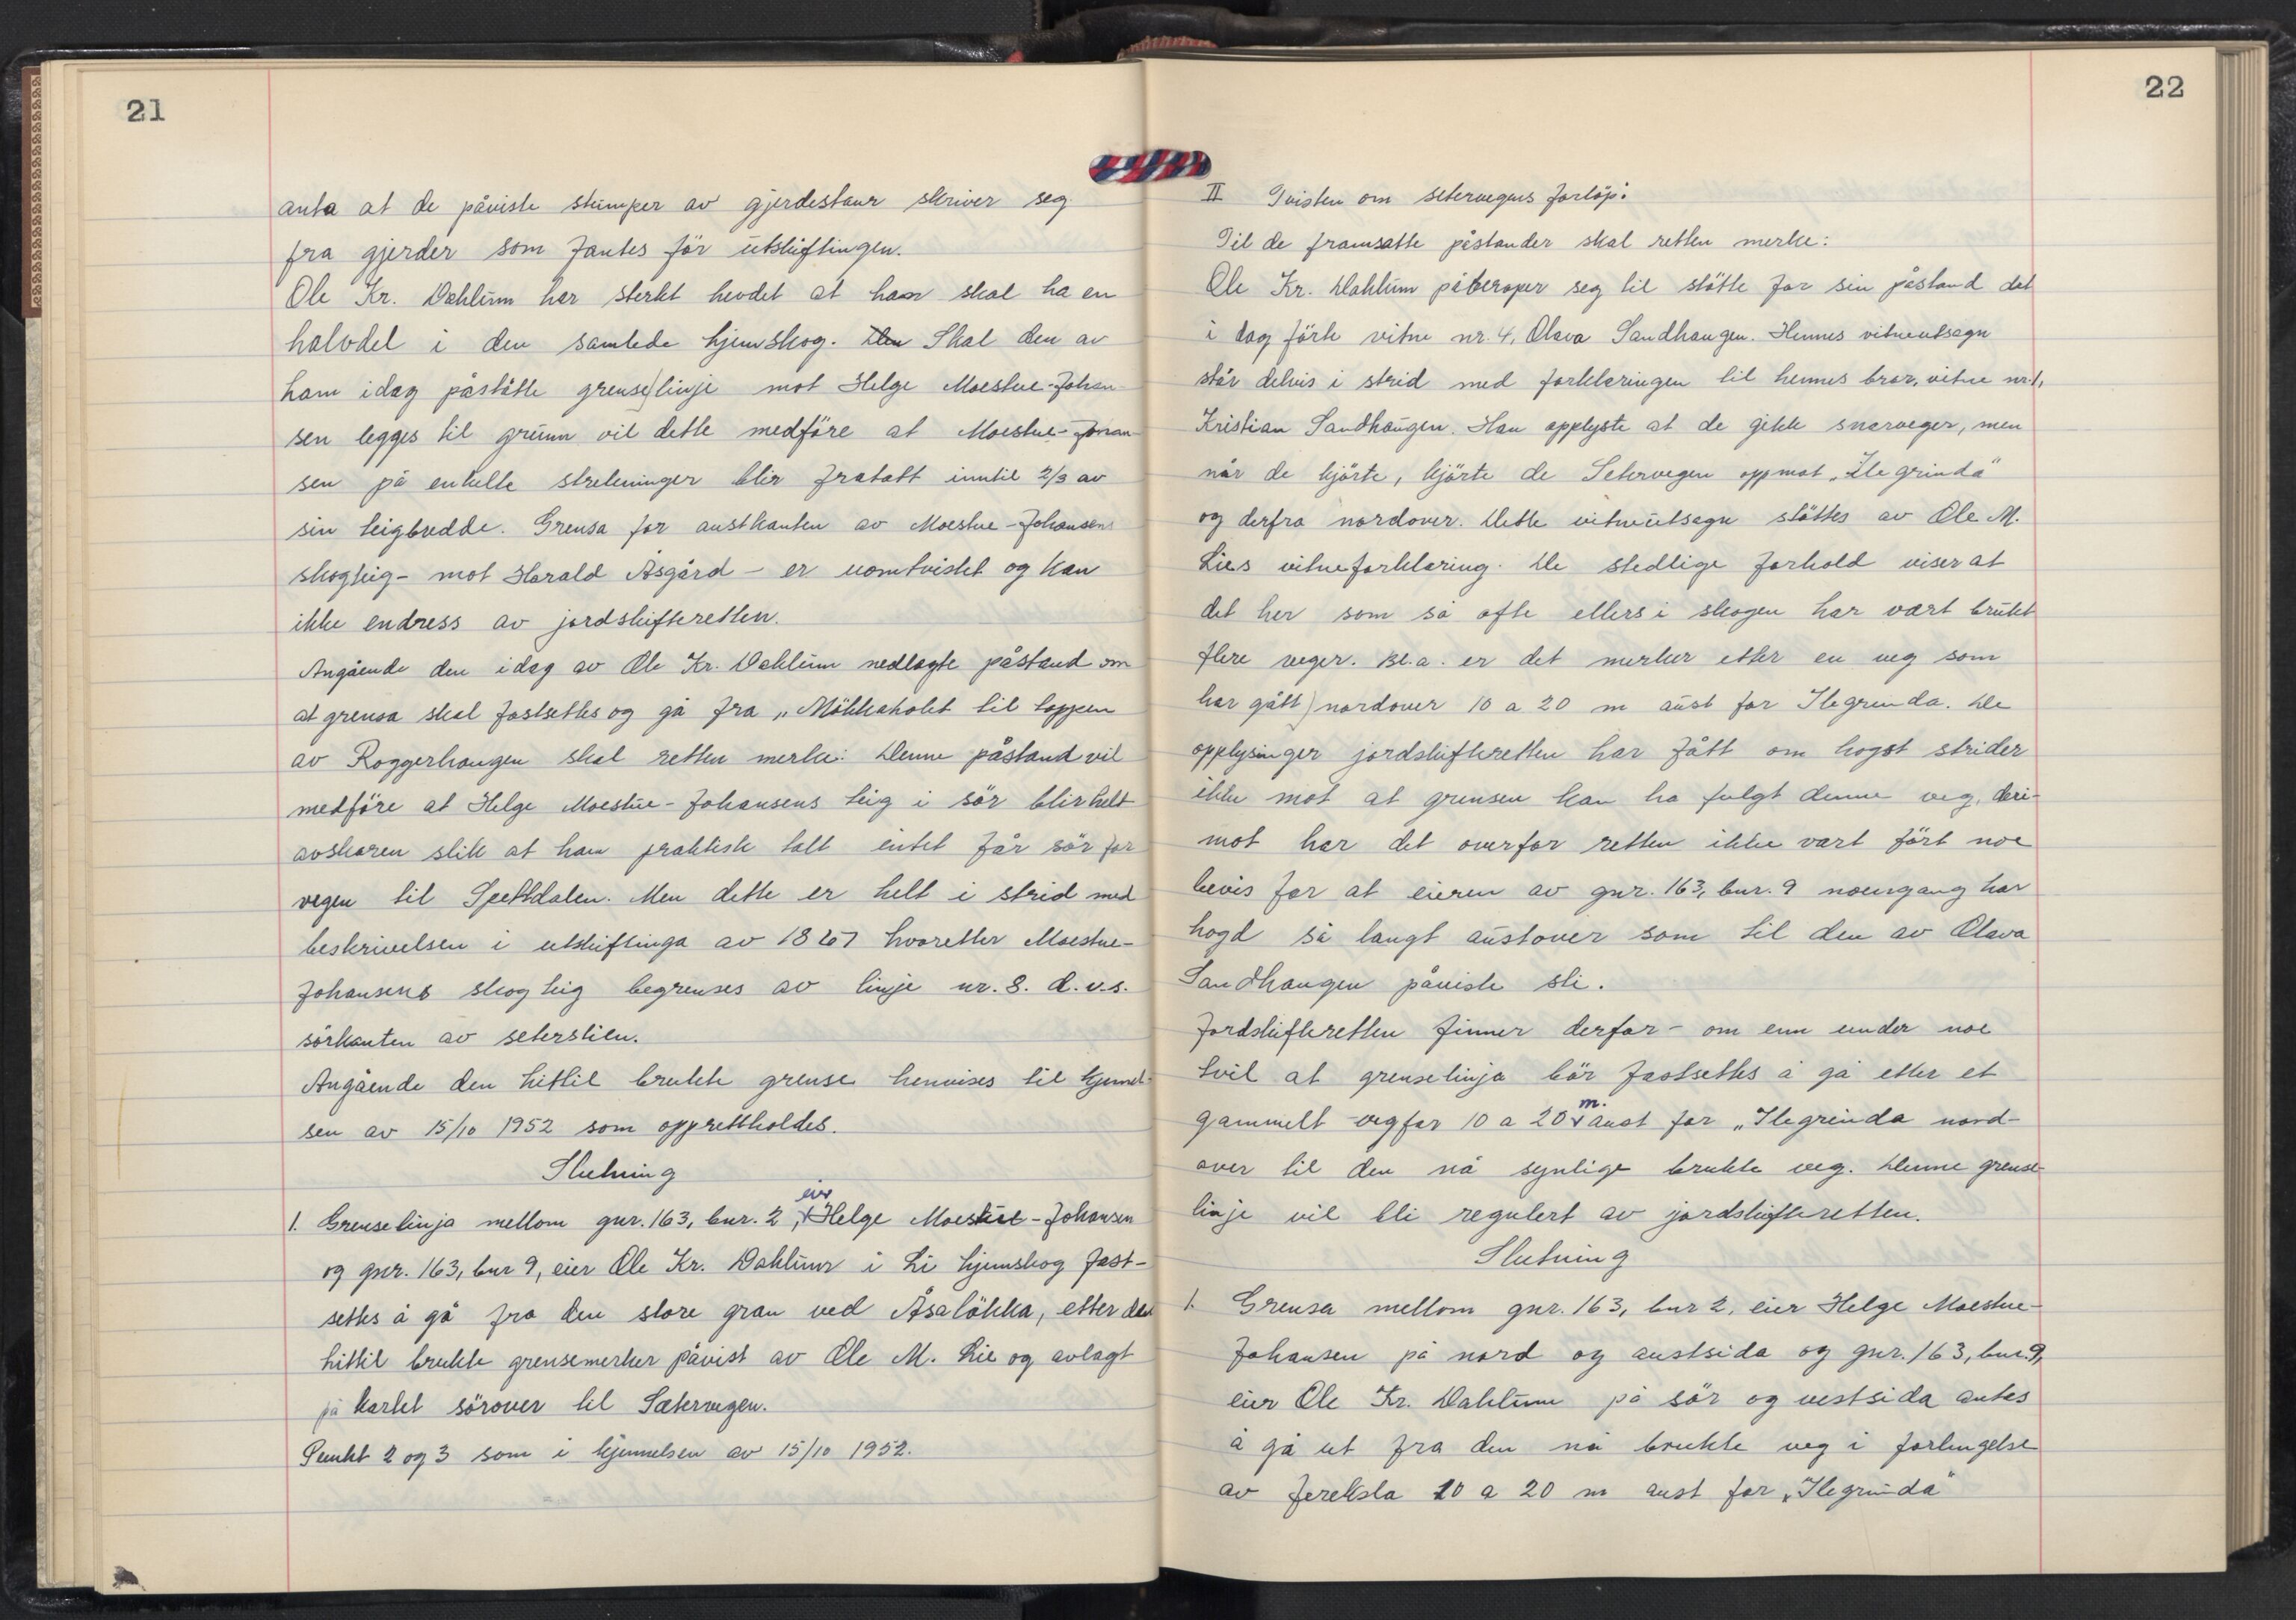 21
anta at de påviste stumper av gjerdestaur skriver seg
fra gjerder som fantes før utskiftingen.
Ole Kr. Dahlum har sterkt hevdet at han skal ha en
halvdel i den samlede hjemskog. Den Skal den av
ham idag påståtte grenselinje mot Helge Moestue-Johan-
sen legges til grunn vil dette medføre at Moestue-Johan-
sen på enkelte strekninger blir fratatt inntil 2/3 av
sin teigbredde. Grensa for austkanten av Moestue-Johansens
skogteig - mot Harald Åsgård - er uomtvistet og kan
ikke endress av jordskifteretten.
Angående den idag av Ole Kr. Dahlum nedlagte påstand om
at grensa skal fastsettes og gå fra „Mökkaholet til toppen
av Roggerhaugen skal retten merke: Denne påstand vil
medföre at Helge Moestue-Johansens teig i sör blir helt
avskåren slik at han praktisk talt intet får sör for
vegen til Spettdalen. Men dette er helt i strid med
beskrivelsen i utskiftinga av 1867 hvoretter Moestue-
Johansens skogteig begrenses av linje nr. 8. d.v.s.
sörkanten av seterstien.
Angående den hittil brukte grense henvises til kjennel-
sen av 15/10 1952 som opprettholdes.
Slutning
1. Grenselinja mellom gnr. 163, bnr. 2, eier Helge Moestue-Johansen
og gnr. 163, bnr 9, eier Ole Kr. Dahlum i Li hjemskog fast-
settes å gå fra den store gran ved Åsalökka, etter den
hittil brukte grensemerker påvist av Ole M. Lie og avlagt
på kartet sörover til Sætervegen.
Punkt 2 og 3 som i kjennelsen av 15/10 1952.
22
II Tvisten om setervegens forlöp:
Til de framsatte påstander skal retten merke:
Ole Kr. Dahlum påberoper seg til stötte for sin påstand det
i dag förte vitne nr. 4, Olava Sandhaugen. Hennes vitneutsagn
står delvis i strid med forklaringen til hennes bror, vitne nr. 1,
Kristian Sandhaugen. Han opplyste at de gikk snarveger, men
når de kjörte, kjörte de Setervegen oppmot „Ilegrinda"
og derfra nordover. Dette vitneutsagn stöttes av Ole M.
Lies vitneforklaring. De stedlige forhold viser at
det her som så ofte ellers i skogen har vært brukt
flere veger. Bl.a. er det merker etter en veg som
har gått nordover 10 a 20 m aust for Ilegrinda. De
opplysninger jordskifteretten har fått om hogst strider
ikke mot at grensen kan ha fulgt denne veg, deri-
mot har det overfor retten ikke vært fört noe
bevis for at eieren av gnr. 163, bnr. 9 noengang har
hogd så langt austover som til den av Olava
Sandhaugen påviste sti.
Jordskifteretten finner derfor - om enn under noe
tvil at grenselinja bör fastsettes å gå etter et
gammelt vegfar 10 a 20 m. aust for „Ilegrinda nord-
over til den nå synlige brukte veg. Denne grense-
linje vil bli regulert av jordskifteretten.
Slutning
1. Grensa mellom gnr. 163, bnr 2, eier Helge Moestue-
Johansen på nord og austsida og gnr. 163, bnr. 9,
eier Ole Kr. Dahlum på sör og vestsida antas
å gå ut fra den nå brukte veg i forlengelse
av ferelsla 10 a 20 m aust for „Ilegrinda"